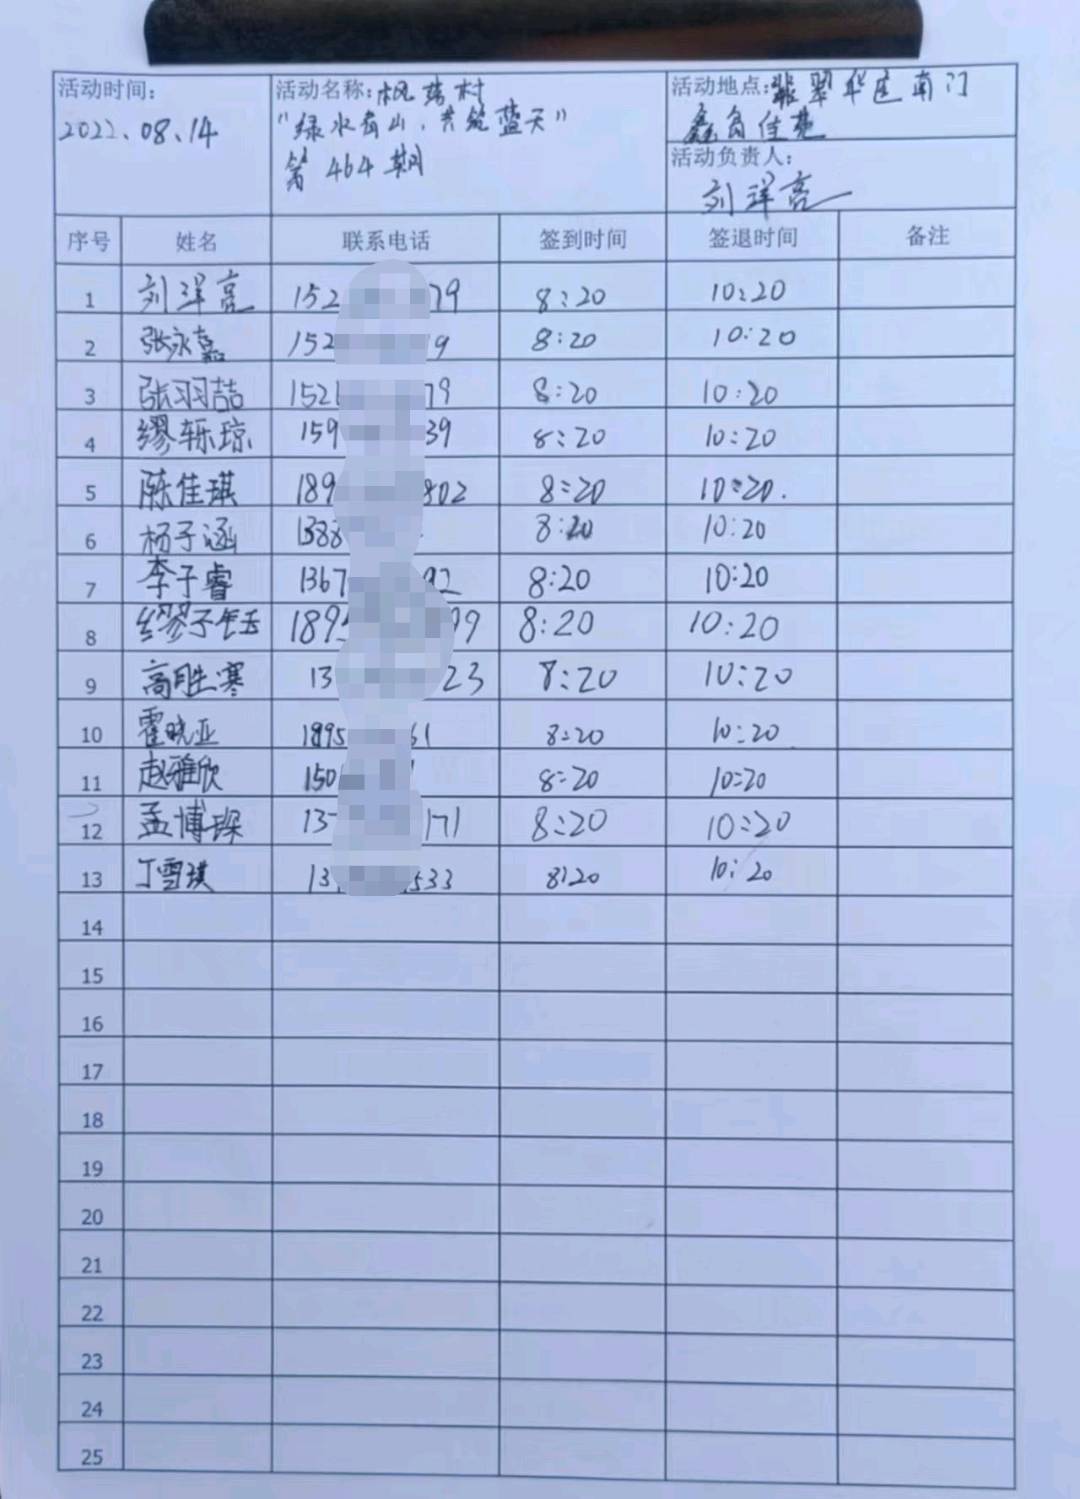 活动时间：
2022.08.14
活动名称：枫 村
"绿水青山，共筑蓝天"
第 464 期
活动地点：翡翠华庭南门
鑫 佳苑
活动负责人：
刘洋亮
序号 姓名 联系电话 签到时间 签退时间 备注
1 刘洋亮 152 79 8:20 10:20
2 张永嘉 152 9 8:20 10:20
3 张羽喆 152 79 8:20 10:20
4 缪轹琼 159 39 8:20 10:20
5 陈佳琪 189 802 8:20 10:20.
6 杨子涵 1388 8:20 10:20
7 李子睿 1367 92 8:20 10:20
8 缪子 189 99 8:20 10:20
9 高胜寒 13 23 8:20 10:20
10 霍晓亚 1895 61 8:20 10:20
11 赵雅欣 150 8:20 10:20
12 孟博琛 13 171 8:20 10:20
13 丁雪琪 13 533 8:20 10:20
14
15
16
17
18
19
20
21
22
23
24
25